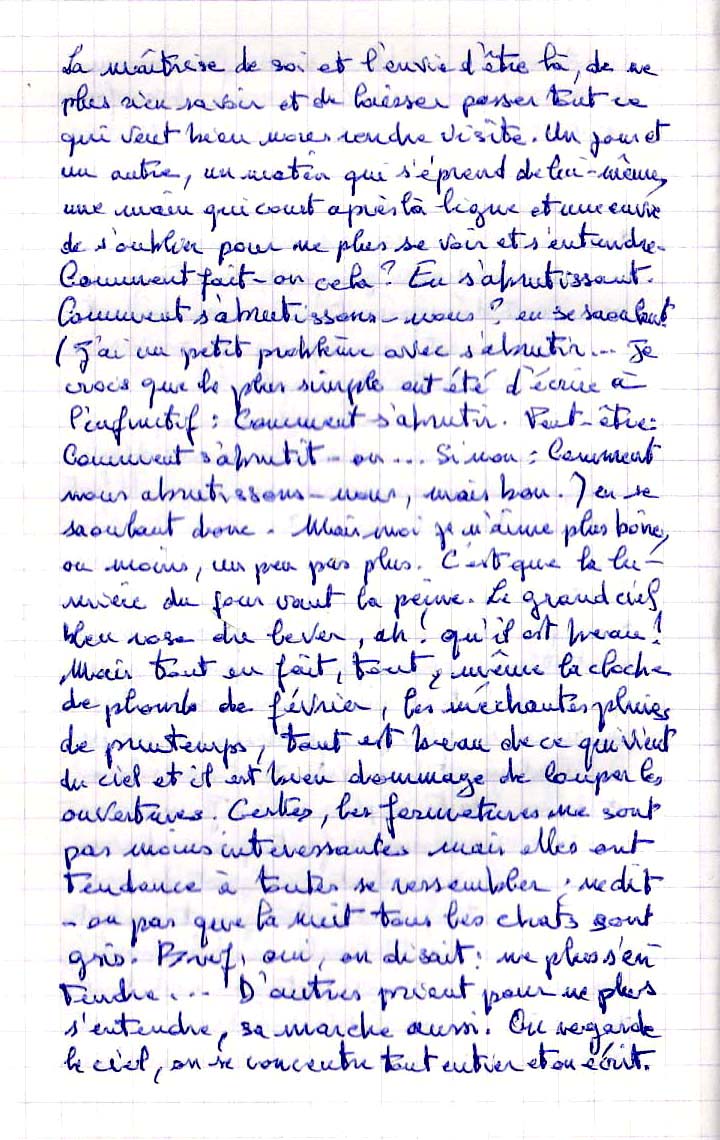 La maîtrise de soi et l'envie d'être là, de ne
plus rien savoir et de laisser passer tout ce
qui veut bien nous rendre visite. Un jour et
un autre, un matin qui s'éprend de lui-même,
une main qui court après la ligne et une envie
de s'oublier pour ne plus se voir et s'entendre.
Comment fait-on cela? En s'abrutissant.
Comment s'abrutissons-nous? en se saoulant
(J'ai un petit problème avec s'abrutir... Je
crois que le plus simple eut été d'écrire à
l'infinitif: Comment s'abrutir. Peut-être:
Comment s'abrutit-on... Sinon: Comment
nous abrutissons-nous, mais bon.) en se
saoulant donc. Mais moi je n'aime plus boire,
ou moins, un peu pas plus. C'est que la lu-
mière du jour vaut la peine. Le grand ciel
bleu rose du lever, ah! qu'il est beau!
Mais tout en fait, tout, même la cloche
de plomb de février, les méchantes pluies
de printemps, tout est beau de ce qui vient
du ciel et il est bien dommage de louper les
ouvertures. Certes, les fermetures ne sont
pas moins interessantes mais elles ont
tendance à toutes se ressembler; ne dit
-on pas que la nuit tous les chats sont
gris. Bref, oui, on disait: ne plus s'en
tendre... D'autres prient pour ne plus
s'entendre, sa marche aussi. On regarde
le ciel, on se concentre tout entier et on écrit.